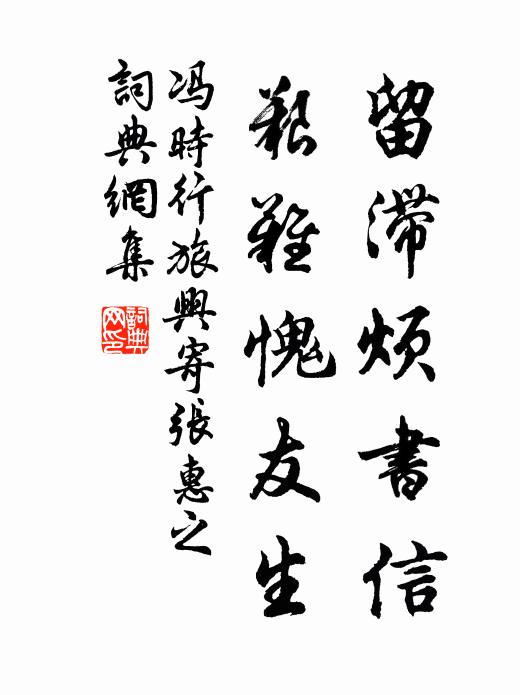 留滯煩書信
艱難愧友生
冯時行旅興寄張惠之
詞典網集
詞典网印